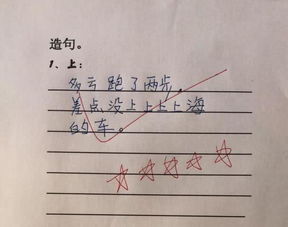 造句。
1、上：
多亏跑了两步。
差点没上上上上海
的车。